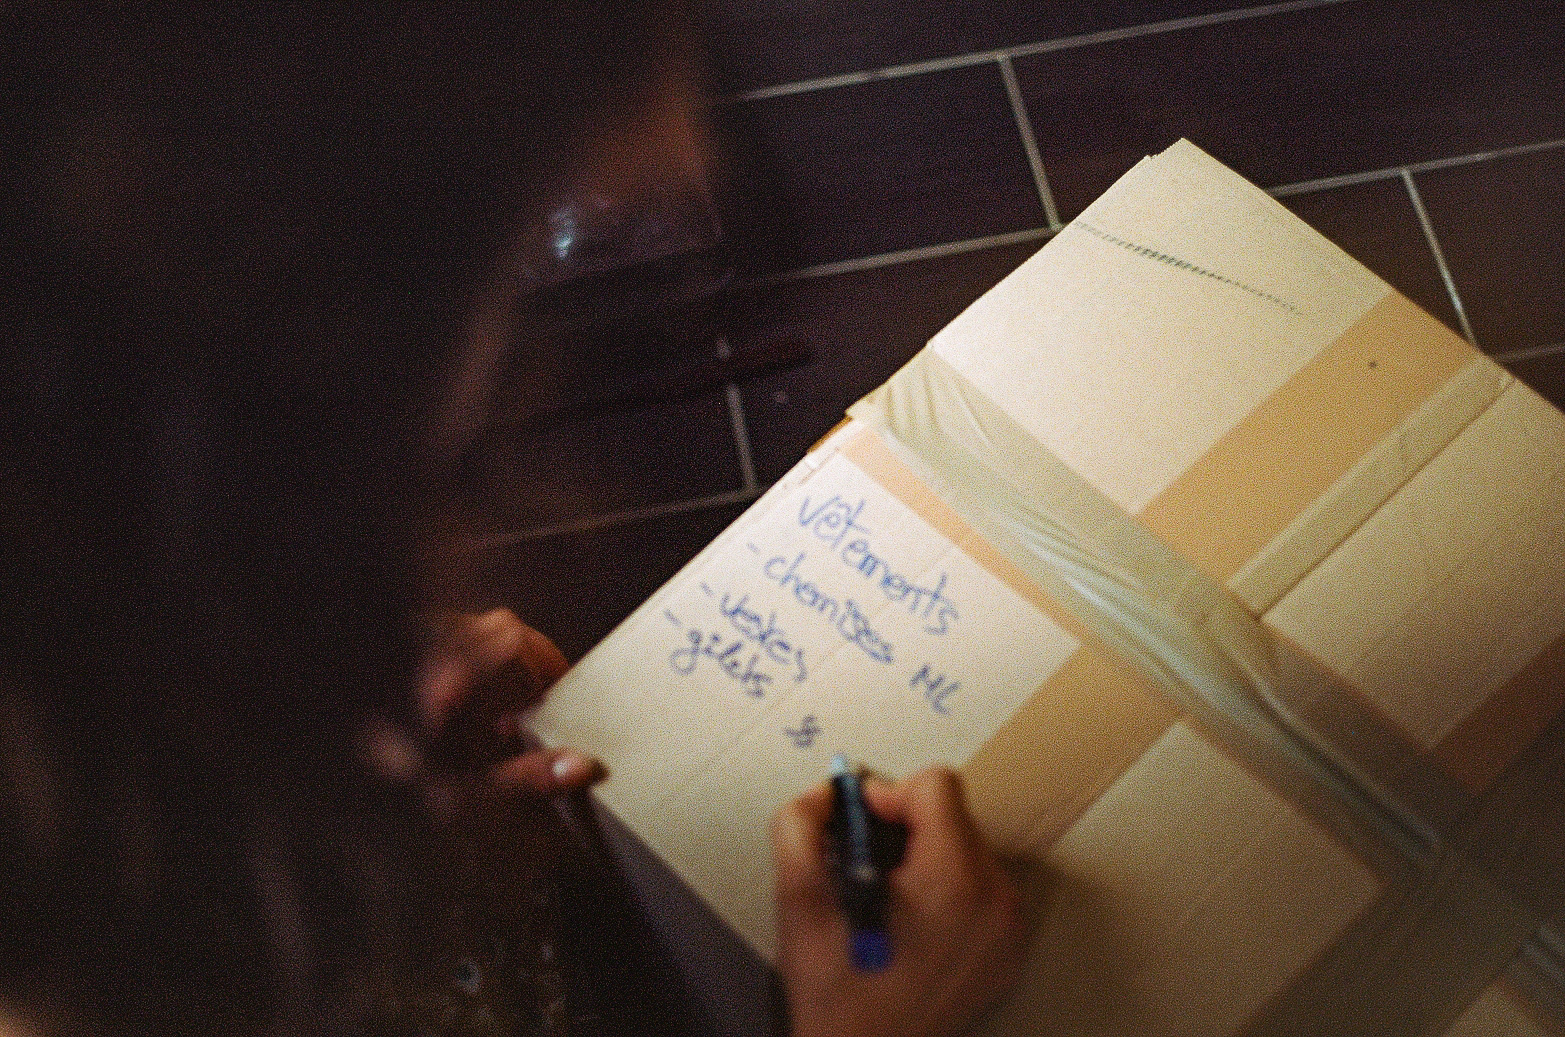 vêtements
- chemises ML
- vestes
- gilets